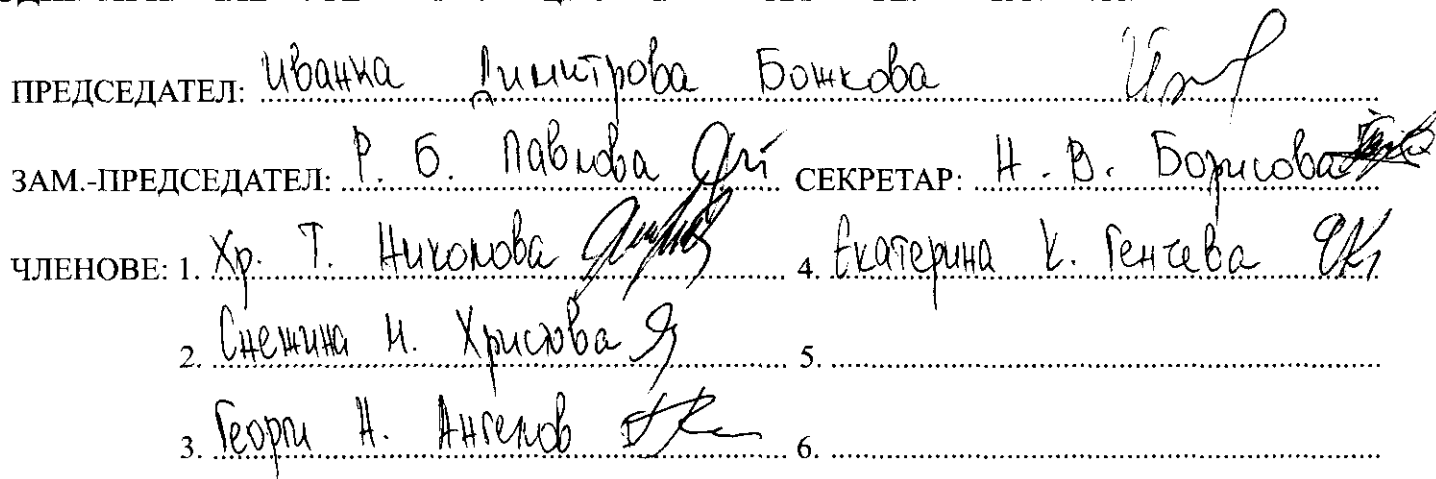 ПРЕДСЕДАТЕЛ: Иванка Димитрова Божкова
ЗАМ.-ПРЕДСЕДАТЕЛ: Р. Б. Павлова СЕКРЕТАР: Н. В. Борисова
ЧЛЕНОВЕ: 1. Хр. Т. Николова 4. Екатерина К. Генчева
2. Снежина Н. Христова 5.
3. Георги Н. Ангелов 6.